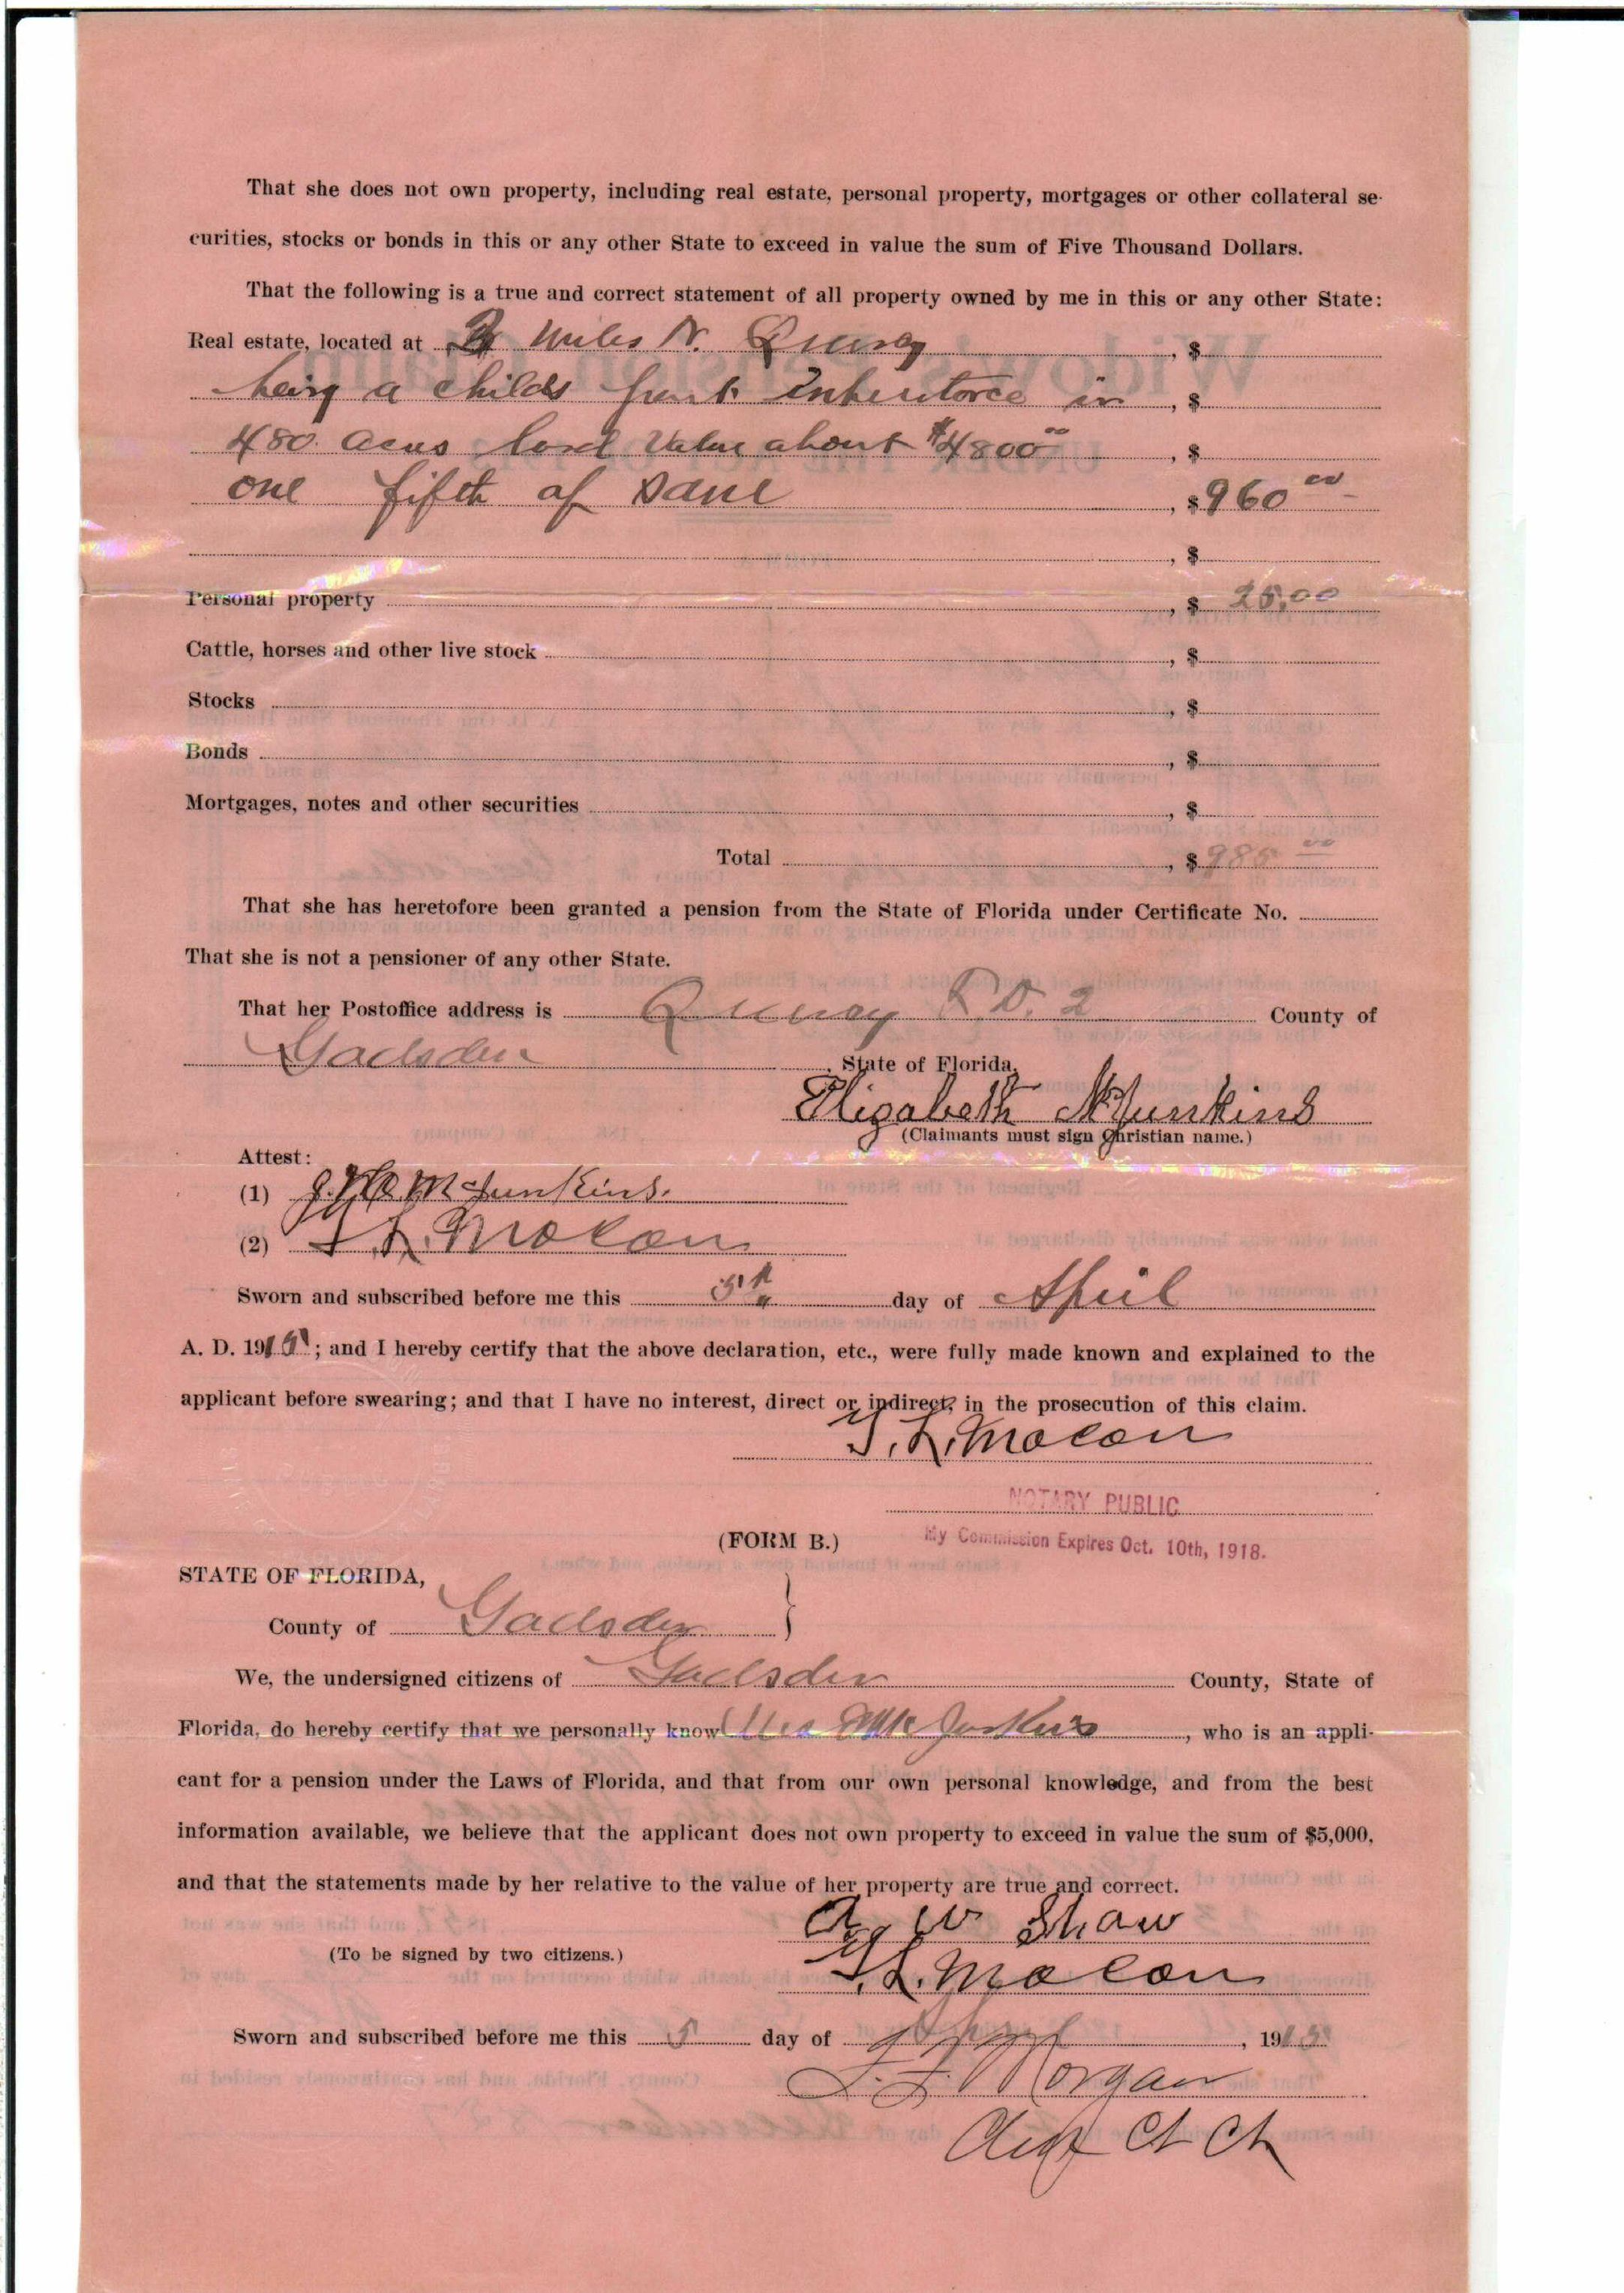 That she does not own property, including real estate, personal property, mortgages or other collateral se-
curities, stocks or bonds in this or any other State to exceed in value the sum of Five Thousand Dollars.
That the following is a true and correct statement of all property owned by me in this or any other State:
Real estate, located at Miles N. Quincy , $
being a childs part Inheritance in , $
480 acres land Value about $4800 00 , $
one fifth of same , $ 960 00
, $
Personal property , $ 25.00
Cattle, horses and other live stock , $
Stocks , $
Bonds , $
Mortgages, notes and other securities , $
Total , $ 985 00
That she has heretofore been granted a pension from the State of Florida under Certificate No.
That she is not a pensioner of any other State.
That her Postoffice address is Quincy R.D. 2 County of
Gadsden , State of Florida.
Elizabeth McJunkins
(Claimants must sign Christian name.)
Attest:
(1) McJunkins.
(2) Y. L. Macon
Sworn and subscribed before me this 5th day of April
A. D. 1915; and I hereby certify that the above declaration, etc., were fully made known and explained to the
applicant before swearing; and that I have no interest, direct or indirect, in the prosecution of this claim.
Y. L. Macon
NOTARY PUBLIC
My Commission Expires Oct. 10th, 1918.
(FORM B.)
STATE OF FLORIDA,
County of Gadsden }
We, the undersigned citizens of Gadsden County, State of
Florida, do hereby certify that we personally know Mrs E McJunkins , who is an appli-
cant for a pension under the Laws of Florida, and that from our own personal knowledge, and from the best
information available, we believe that the applicant does not own property to exceed in value the sum of $5,000,
and that the statements made by her relative to the value of her property are true and correct.
W Shaw
(To be signed by two citizens.)
Y. L. Macon
Sworn and subscribed before me this 5 day of April , 1915
Morgan
Clerk Ct Ct